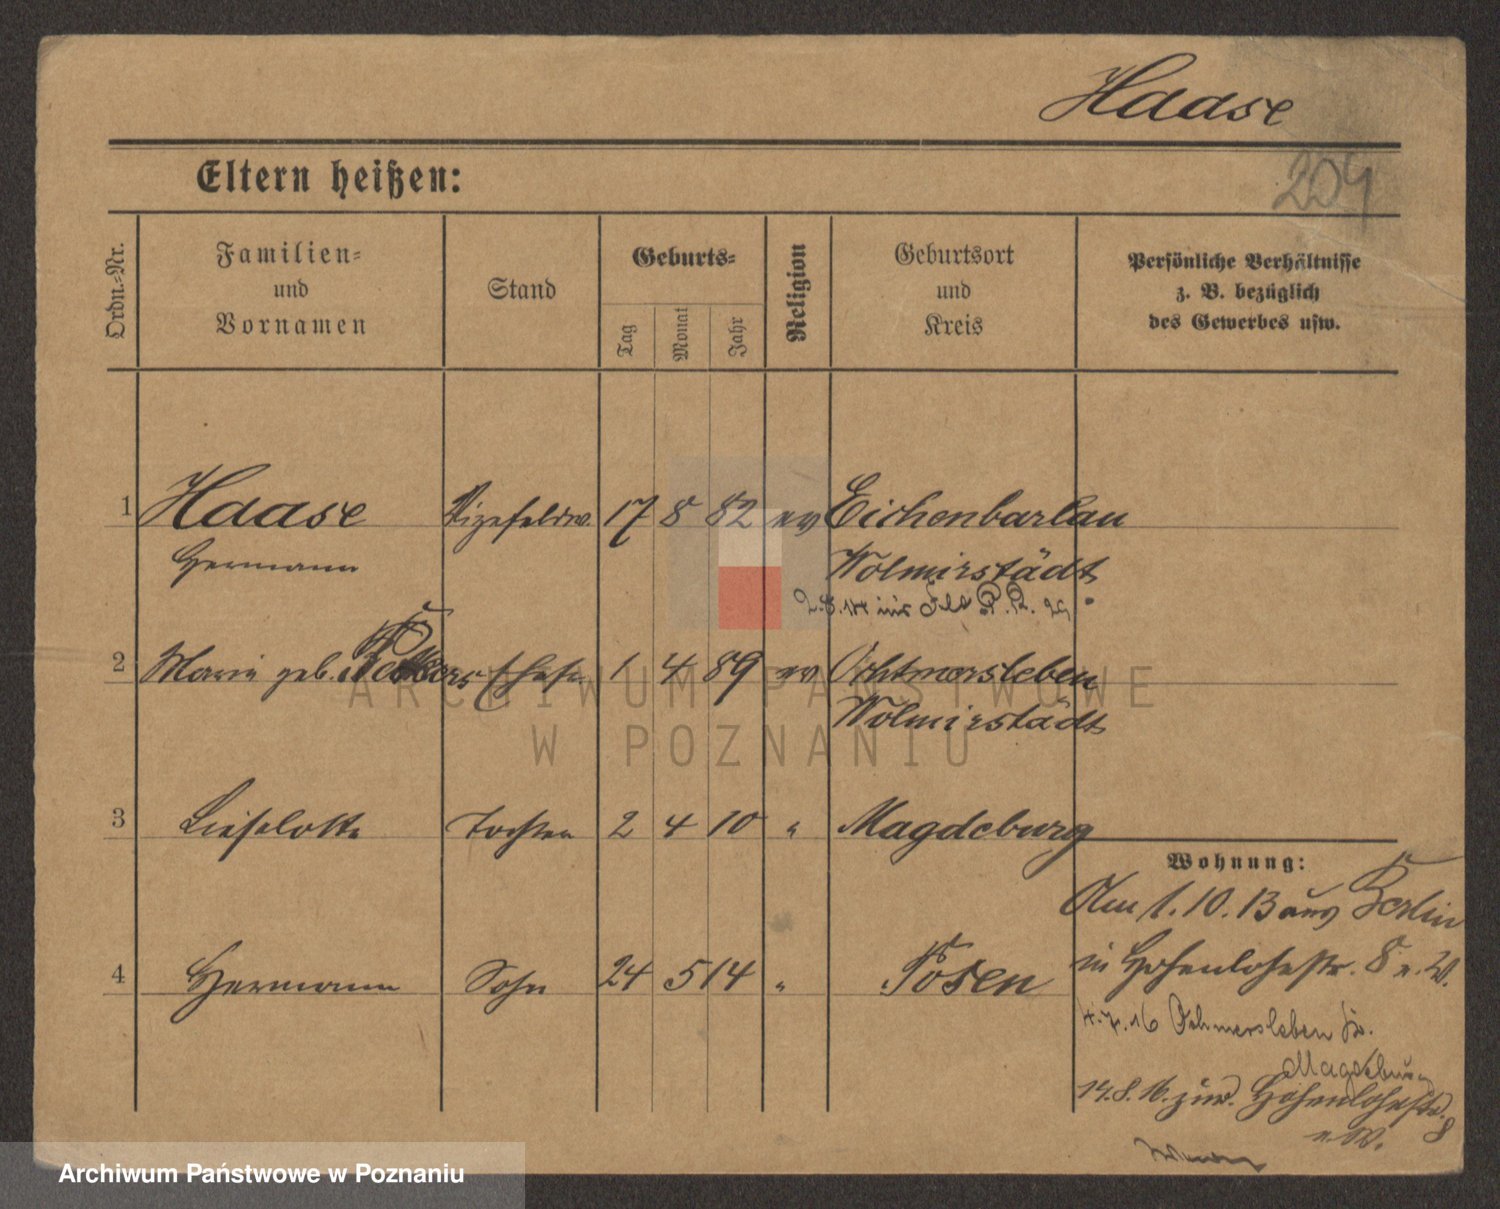 Haase
209
Eltern heißen:
Ordn.-Nr.
Familien-
und
Vornamen
Stand
Geburts-
Tag
Monat
Jahr
Religion
Geburtsort
und
Kreis
Persönliche Verhältnisse
z. B. bezüglich
des Gewerbes usw.
1 Haase Vizefeldw. 17 8 82 ev Eichenbarlau
Hermann Wolmirstädt
2.8.14 ins Feld
2 Marie geb. Ehefr. 1 4 89 ev Ochtmersleben
Wolmirstädt
3 Lieselotte Tochter 2 4 10 " Magdeburg
Wohnung:
Am 1.10.13 aus Berlin
in Hohenlohestr. 8 n. W.
4 Hermann Sohn 24 5 14 " Posen
4.7.16 Ochmersleben Kr.
Magdeburg
14.8.16. zur. Hohenlohestr. 8
n. W.
ARCHIWUM PAŃSTWOWE
W POZNANIU
Archiwum Państwowe w Poznaniu